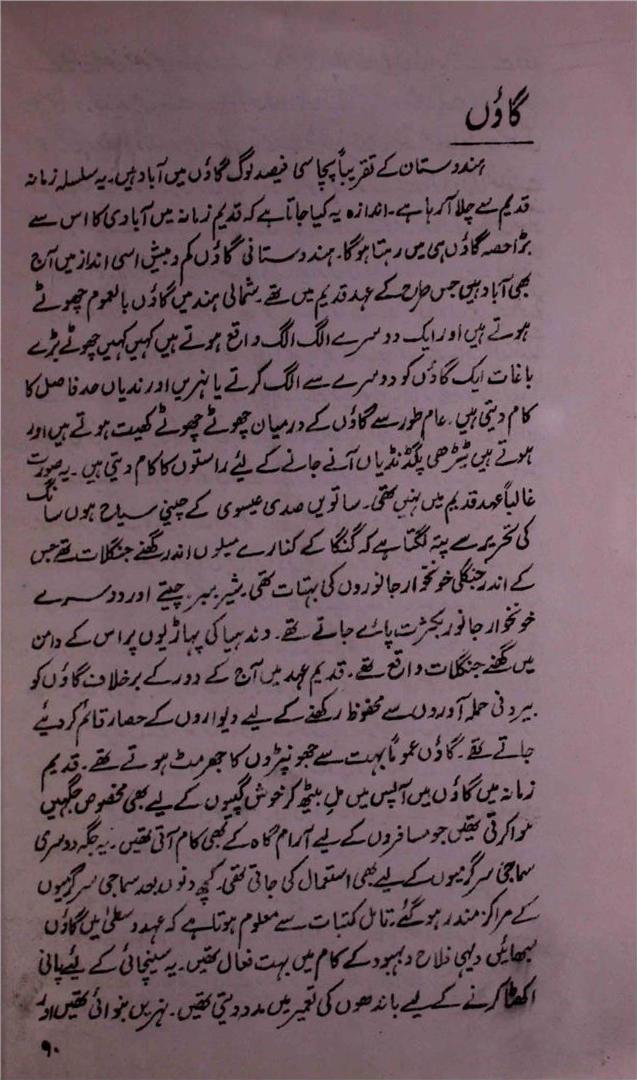 گاؤں
ہندوستان کے تقریباً پچاسی فیصد لوگ گاؤں میں آباد ہیں۔ یہ سلسلہ زمانہ
قدیم سے چلا آ رہا ہے۔ اندازہ یہ کیا جاتا ہے کہ قدیم زمانہ میں آبادی کا اس سے
بڑا حصہ گاؤں ہی میں رہتا ہوگا۔ ہندوستانی گاؤں کم و بیش اسی انداز میں آج
بھی آباد ہیں جس طرح کے عہد قدیم میں تھے۔ شمالی ہند میں گاؤں بالعموم چھوٹے
ہوتے ہیں اور ایک دوسرے سے الگ الگ واقع ہوتے ہیں کہیں کہیں چھوٹے بڑے
باغات ایک گاؤں کو دوسرے سے الگ کرتے یا نہریں اور ندیاں حد فاصل کا
کام دیتی ہیں۔ عام طور سے گاؤں کے درمیان چھوٹے چھوٹے کھیت ہوتے ہیں اور
ہوتے ہیں ٹیڑھی پگڈنڈیاں آنے جانے کے لیئے راستوں کا کام دیتی ہیں۔ یہ صورت
غالباً عہد قدیم میں نہیں تھی۔ ساتویں صدی عیسوی کے چینی سیاح ہوں سانگ
کی تحریر سے پتہ لگتا ہے کہ گنگا کے کنارے میلوں اندر گھنے جنگلات تھے جس
کے اندر جنگلی خونخوار جانوروں کی بہتات تھی۔ شیر ببر، چیتے اور دوسرے
خونخوار جانور بکثرت پائے جاتے تھے۔ وندھیا کی پہاڑیوں پر اس کے دامن
میں گھنے جنگلات واقع تھے۔ قدیم عہد میں آج کے دور کے برخلاف گاؤں کو
بیرونی حملہ آوروں سے محفوظ رکھنے کے لیے دیواروں کے حصار قائم کر دیئے
جاتے تھے۔ گاؤں عموماً بہت سے جھونپڑوں کا جھرمٹ ہوتے تھے۔ قدیم
زمانہ میں گاؤں میں آپس میں مل بیٹھ کر خوش گپیوں کے لیے بھی مخصوص جگہیں
ہوا کرتی تھیں جو مسافروں کے لیے آرام گاہ کے بھی کام آتی تھیں۔ یہ جگہ دوسری
سماجی سرگرمیوں کے لیے بھی استعمال کی جاتی تھی۔ کچھ دنوں بعد سماجی سرگرمیوں
کے مراکز مندر ہو گئے۔ تامل کتبات سے معلوم ہوتا ہے کہ عہد وسطیٰ میں گاؤں
سبھائیں دیہی فلاح و بہبود کے کام میں بہت فعال تھیں۔ یہ سینچائی کے لیئے پانی
اکٹھا کرنے کے لیے باندھوں کی تعمیر میں مدد دیتی تھیں۔ نہریں بنوائی تھیں اور
۹۰